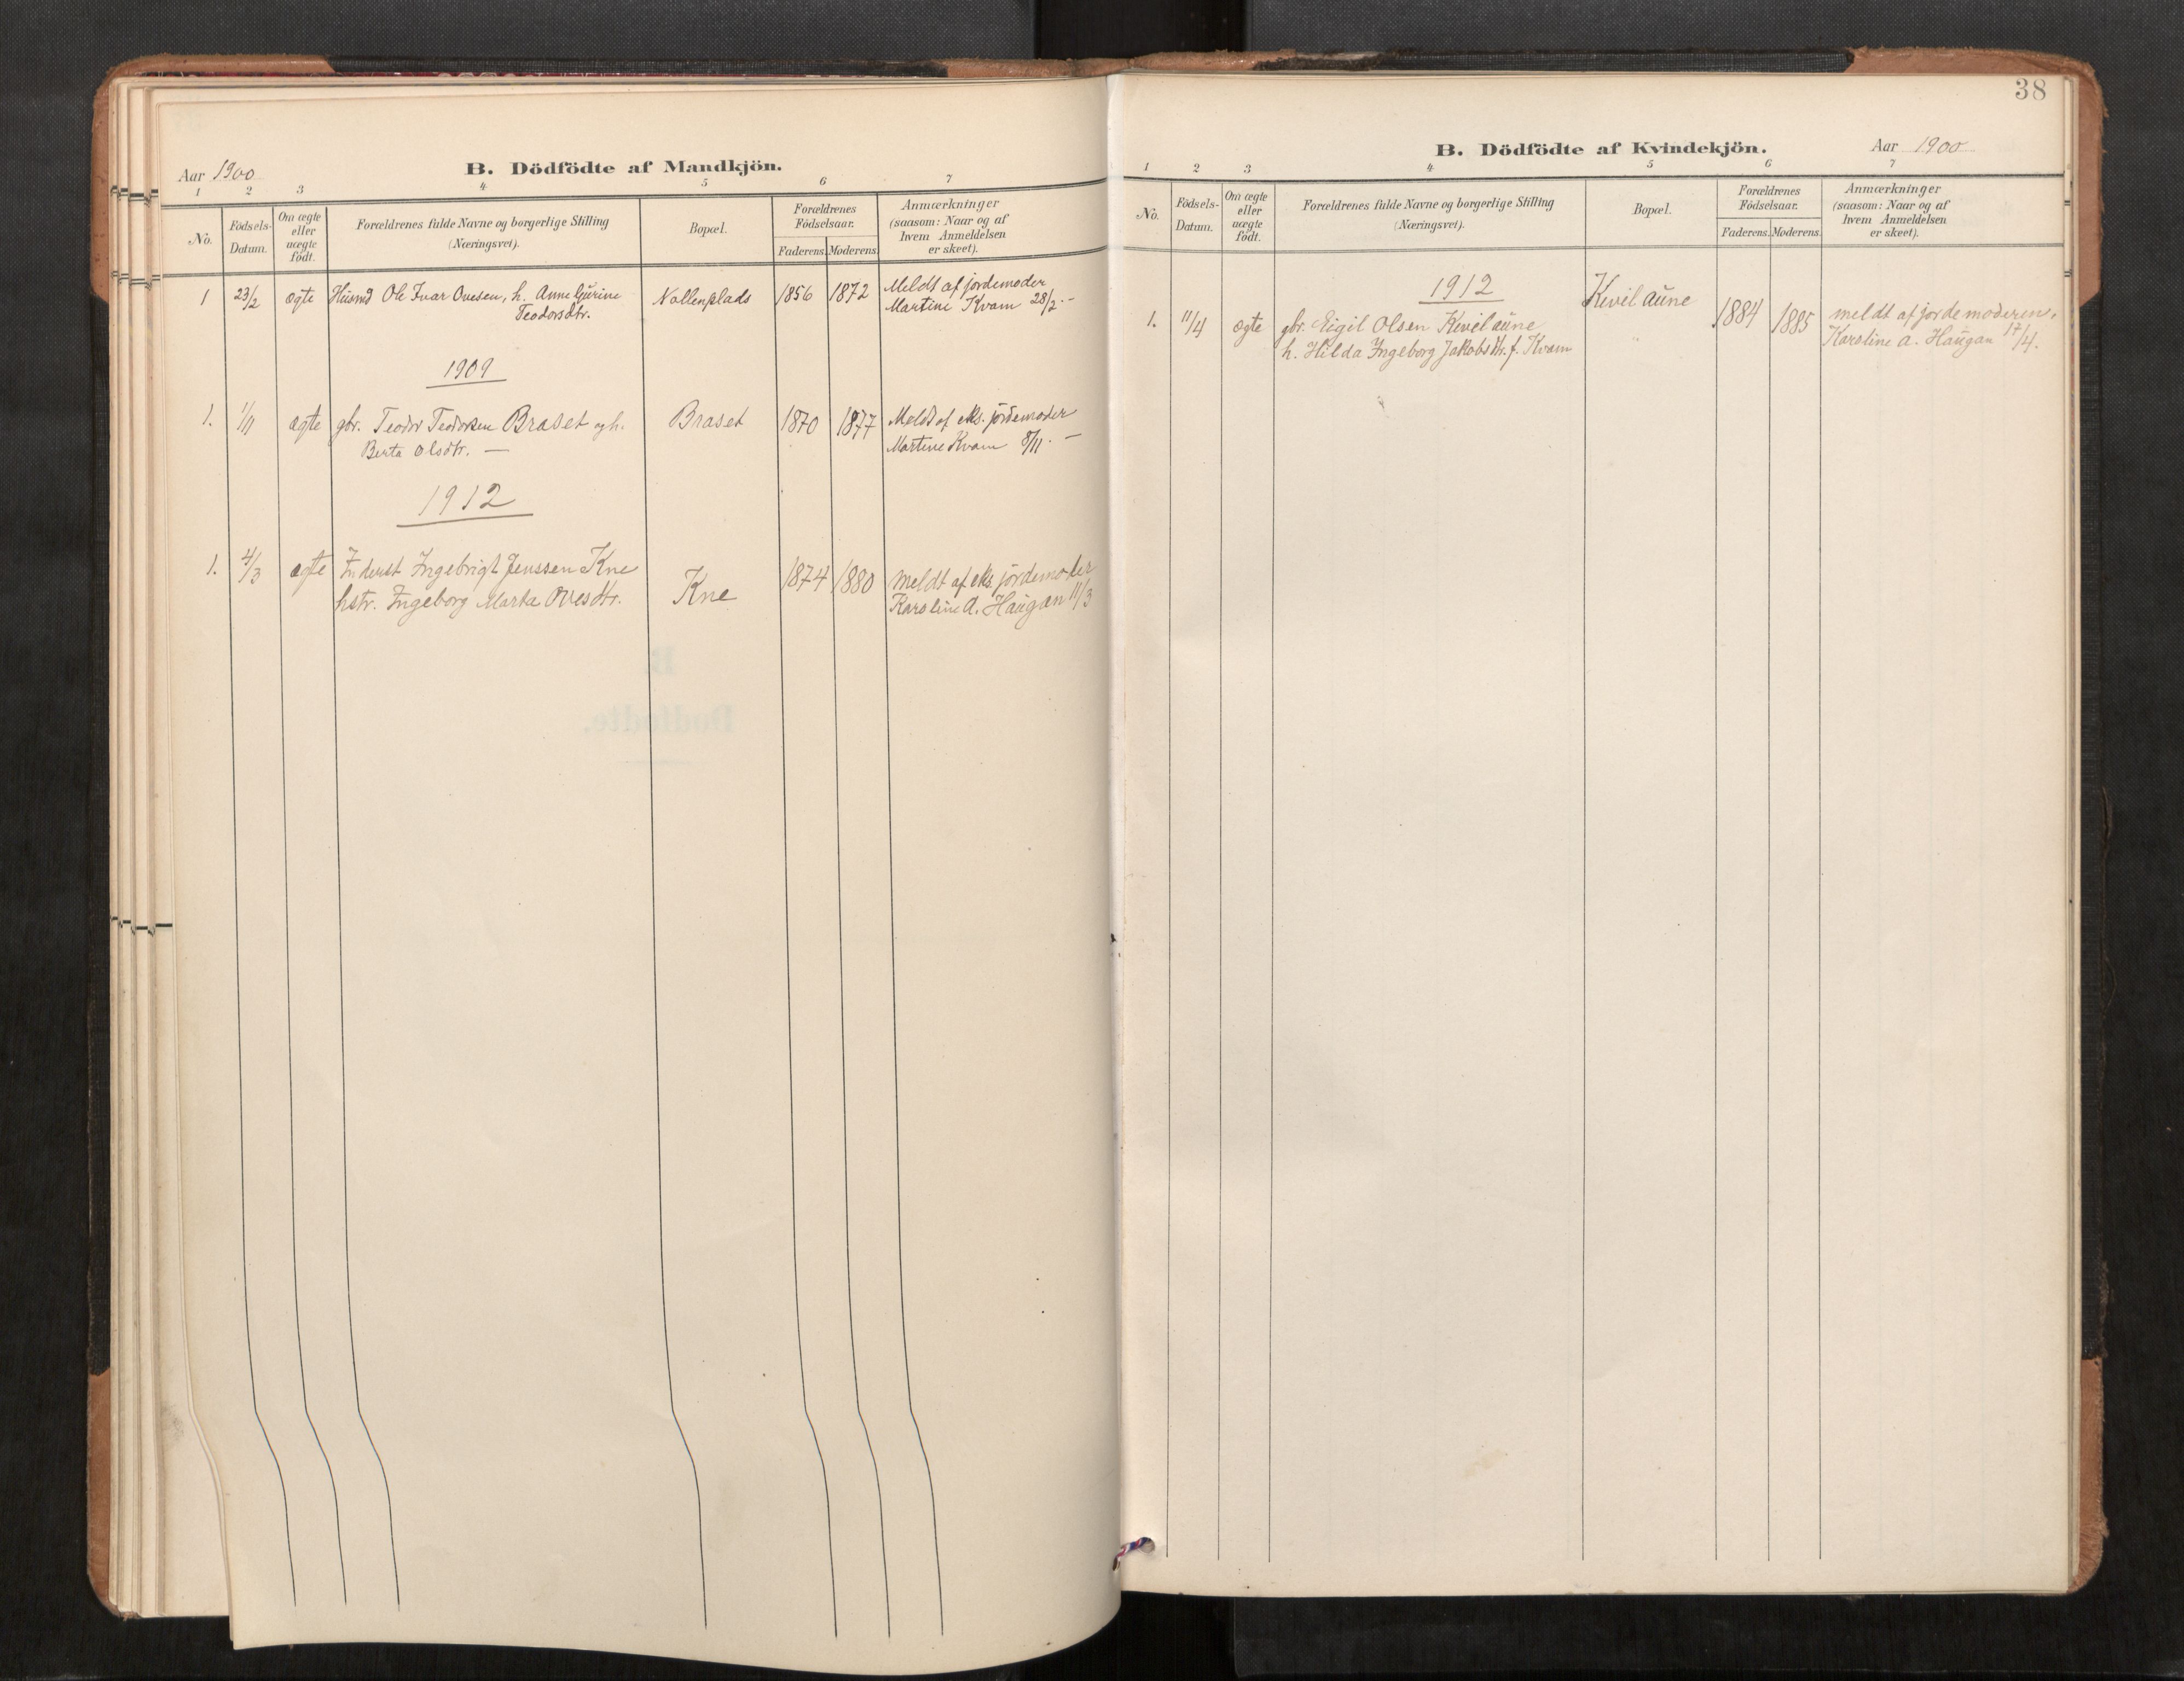 Aar 1900
B. Dödfödte af Mandkjön.
1 2 3 4 5 6 7
No.
Födsels-
Datum.
Om ægte
eller
uægte
födt.
Forældrenes fulde Navne og borgerlige Stilling
(Næringsvei).
Bopæl.
Forældrenes
Födselsaar.
Faderens. Moderens.
Anmærkninger
(saasom: Naar og af
hvem Anmeldelsen
er skeet).
1 23/2 ægte Husmd Ole Ivar Ovesen, h. Anne Gurine
Teodorsdtr.
Nollenplads 1856 1872 Meldt af jordemoder
Martine Kvam 28/2. -
1909
1. 1/11 ægte gbr. Teodor Teodorsen Braset og h.
Berta Olsdtr. —
Braset 1870 1877 Meldt af eks. jordemoder
Martine Kvam 8/11. —
1912
1. 4/3 ægte Inderst Ingebrigt Jenssen Kne
hstr. Ingeborg Marta Ovesdtr.
Kne 1874 1880 meldt af eks. jordemoder
Karoline A. Haugan 11/3
38
B. Dödfödte af Kvindekjön.
Aar 1900
1 2 3 4 5 6 7
No.
Födsels-
Datum.
Om ægte
eller
uægte
födt.
Forældrenes fulde Navne og borgerlige Stilling
(Næringsvei).
Bopæl.
Forældrenes
Födselsaar.
Faderens. Moderens.
Anmærkninger
(saasom: Naar og af
hvem Anmeldelsen
er skeet).
1912
1. 11/4 ægte gbr. Eigil Olsen Kvelaune
h. Hilda Ingeborg Jakobsdtr. f. Kvam
1884 1885 meldt af jordemoderen,
Karoline A. Haugan 17/4.
B.
Dödfödte.